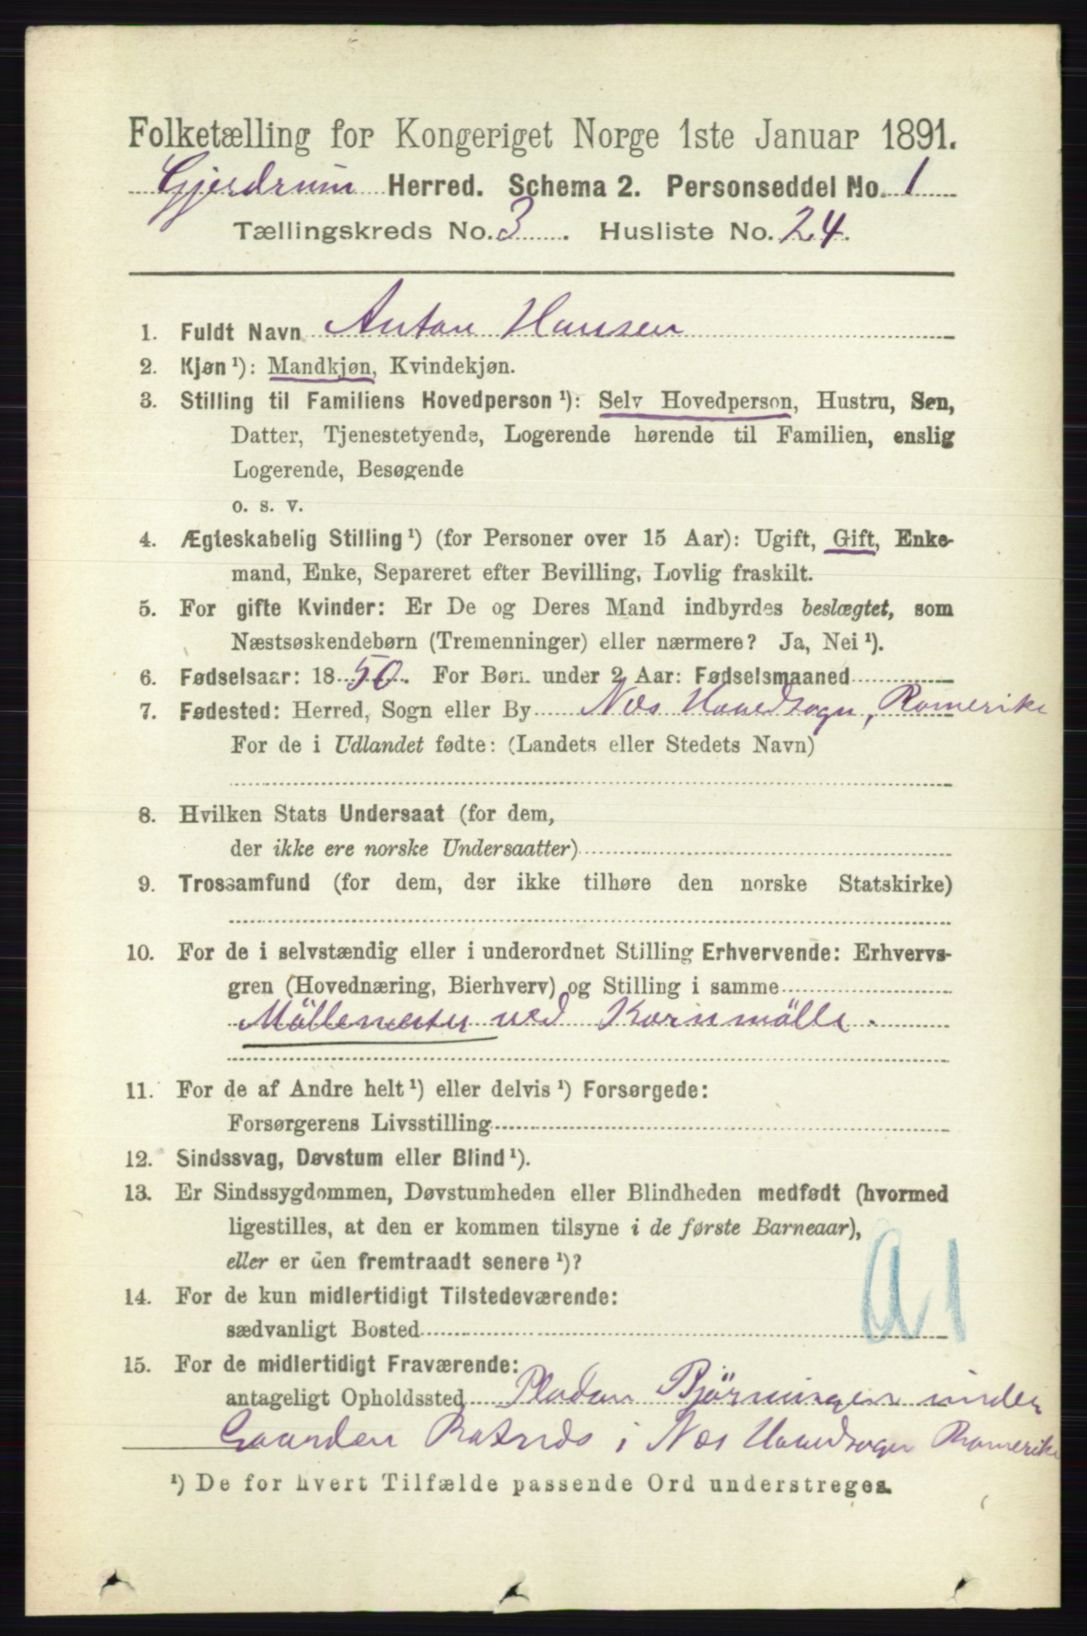 Folketælling for Kongeriget Norge 1ste Januar 1891.
Gjerdrum Herred. Schema 2. Personseddel No. 1
Tællingskreds No. 3. Husliste No. 24.
1. Fuldt Navn Anton Hansen
2. Kjøn ¹): Mandkjøn, Kvindekjøn.
3. Stilling til Familiens Hovedperson ¹): Selv Hovedperson, Hustru, Søn,
Datter, Tjenestetyende, Logerende hørende til Familien, enslig
Logerende, Besøgende
o. s. v.
4. Ægteskabelig Stilling ¹) (for Personer over 15 Aar): Ugift, Gift, Enke-
mand, Enke, Separeret efter Bevilling, Lovlig fraskilt.
5. For gifte Kvinder: Er De og Deres Mand indbyrdes beslægtet, som
Næstsøskendebørn (Tremenninger) eller nærmere? Ja, Nei ¹).
6. Fødselsaar: 1850. For Børn under 2 Aar: Fødselsmaaned
7. Fødested: Herred, Sogn eller By Næs Hovedsogn, Romerike
For de i Udlandet fødte: (Landets eller Stedets Navn)
8. Hvilken Stats Undersaat (for dem,
der ikke ere norske Undersaatter)
9. Trossamfund (for dem, der ikke tilhøre den norske Statskirke)
10. For de i selvstændig eller i underordnet Stilling Erhvervende: Erhvervs-
gren (Hovednæring, Bierhverv) og Stilling i samme
Möllemester ved Kornmölle.
11. For de af Andre helt ¹) eller delvis ¹) Forsørgede:
Forsørgerens Livsstilling
12. Sindssvag, Døvstum eller Blind ¹).
13. Er Sindssygdommen, Døvstumheden eller Blindheden medfødt (hvormed
ligestilles, at den er kommen tilsyne i de første Barneaar),
eller er den fremtraadt senere ¹)?
14. For de kun midlertidigt Tilstedeværende:
sædvanligt Bosted
a1
15. For de midlertidigt Fraværende:
antageligt Opholdssted Pladsen Björningen under
Gaarden i Næs Hovedsogn Romerike
¹) De for hvert Tilfælde passende Ord understreges.